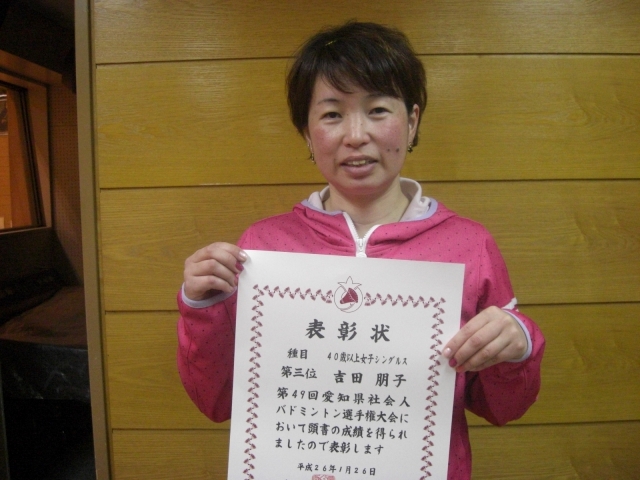 表彰状
種目 40歳以上女子シングルス
第三位 吉田 朋子
第49回愛知県社会人
バドミントン選手権大会に
おいて頭書の成績を得られ
ましたので表彰します
平成26年1月26日